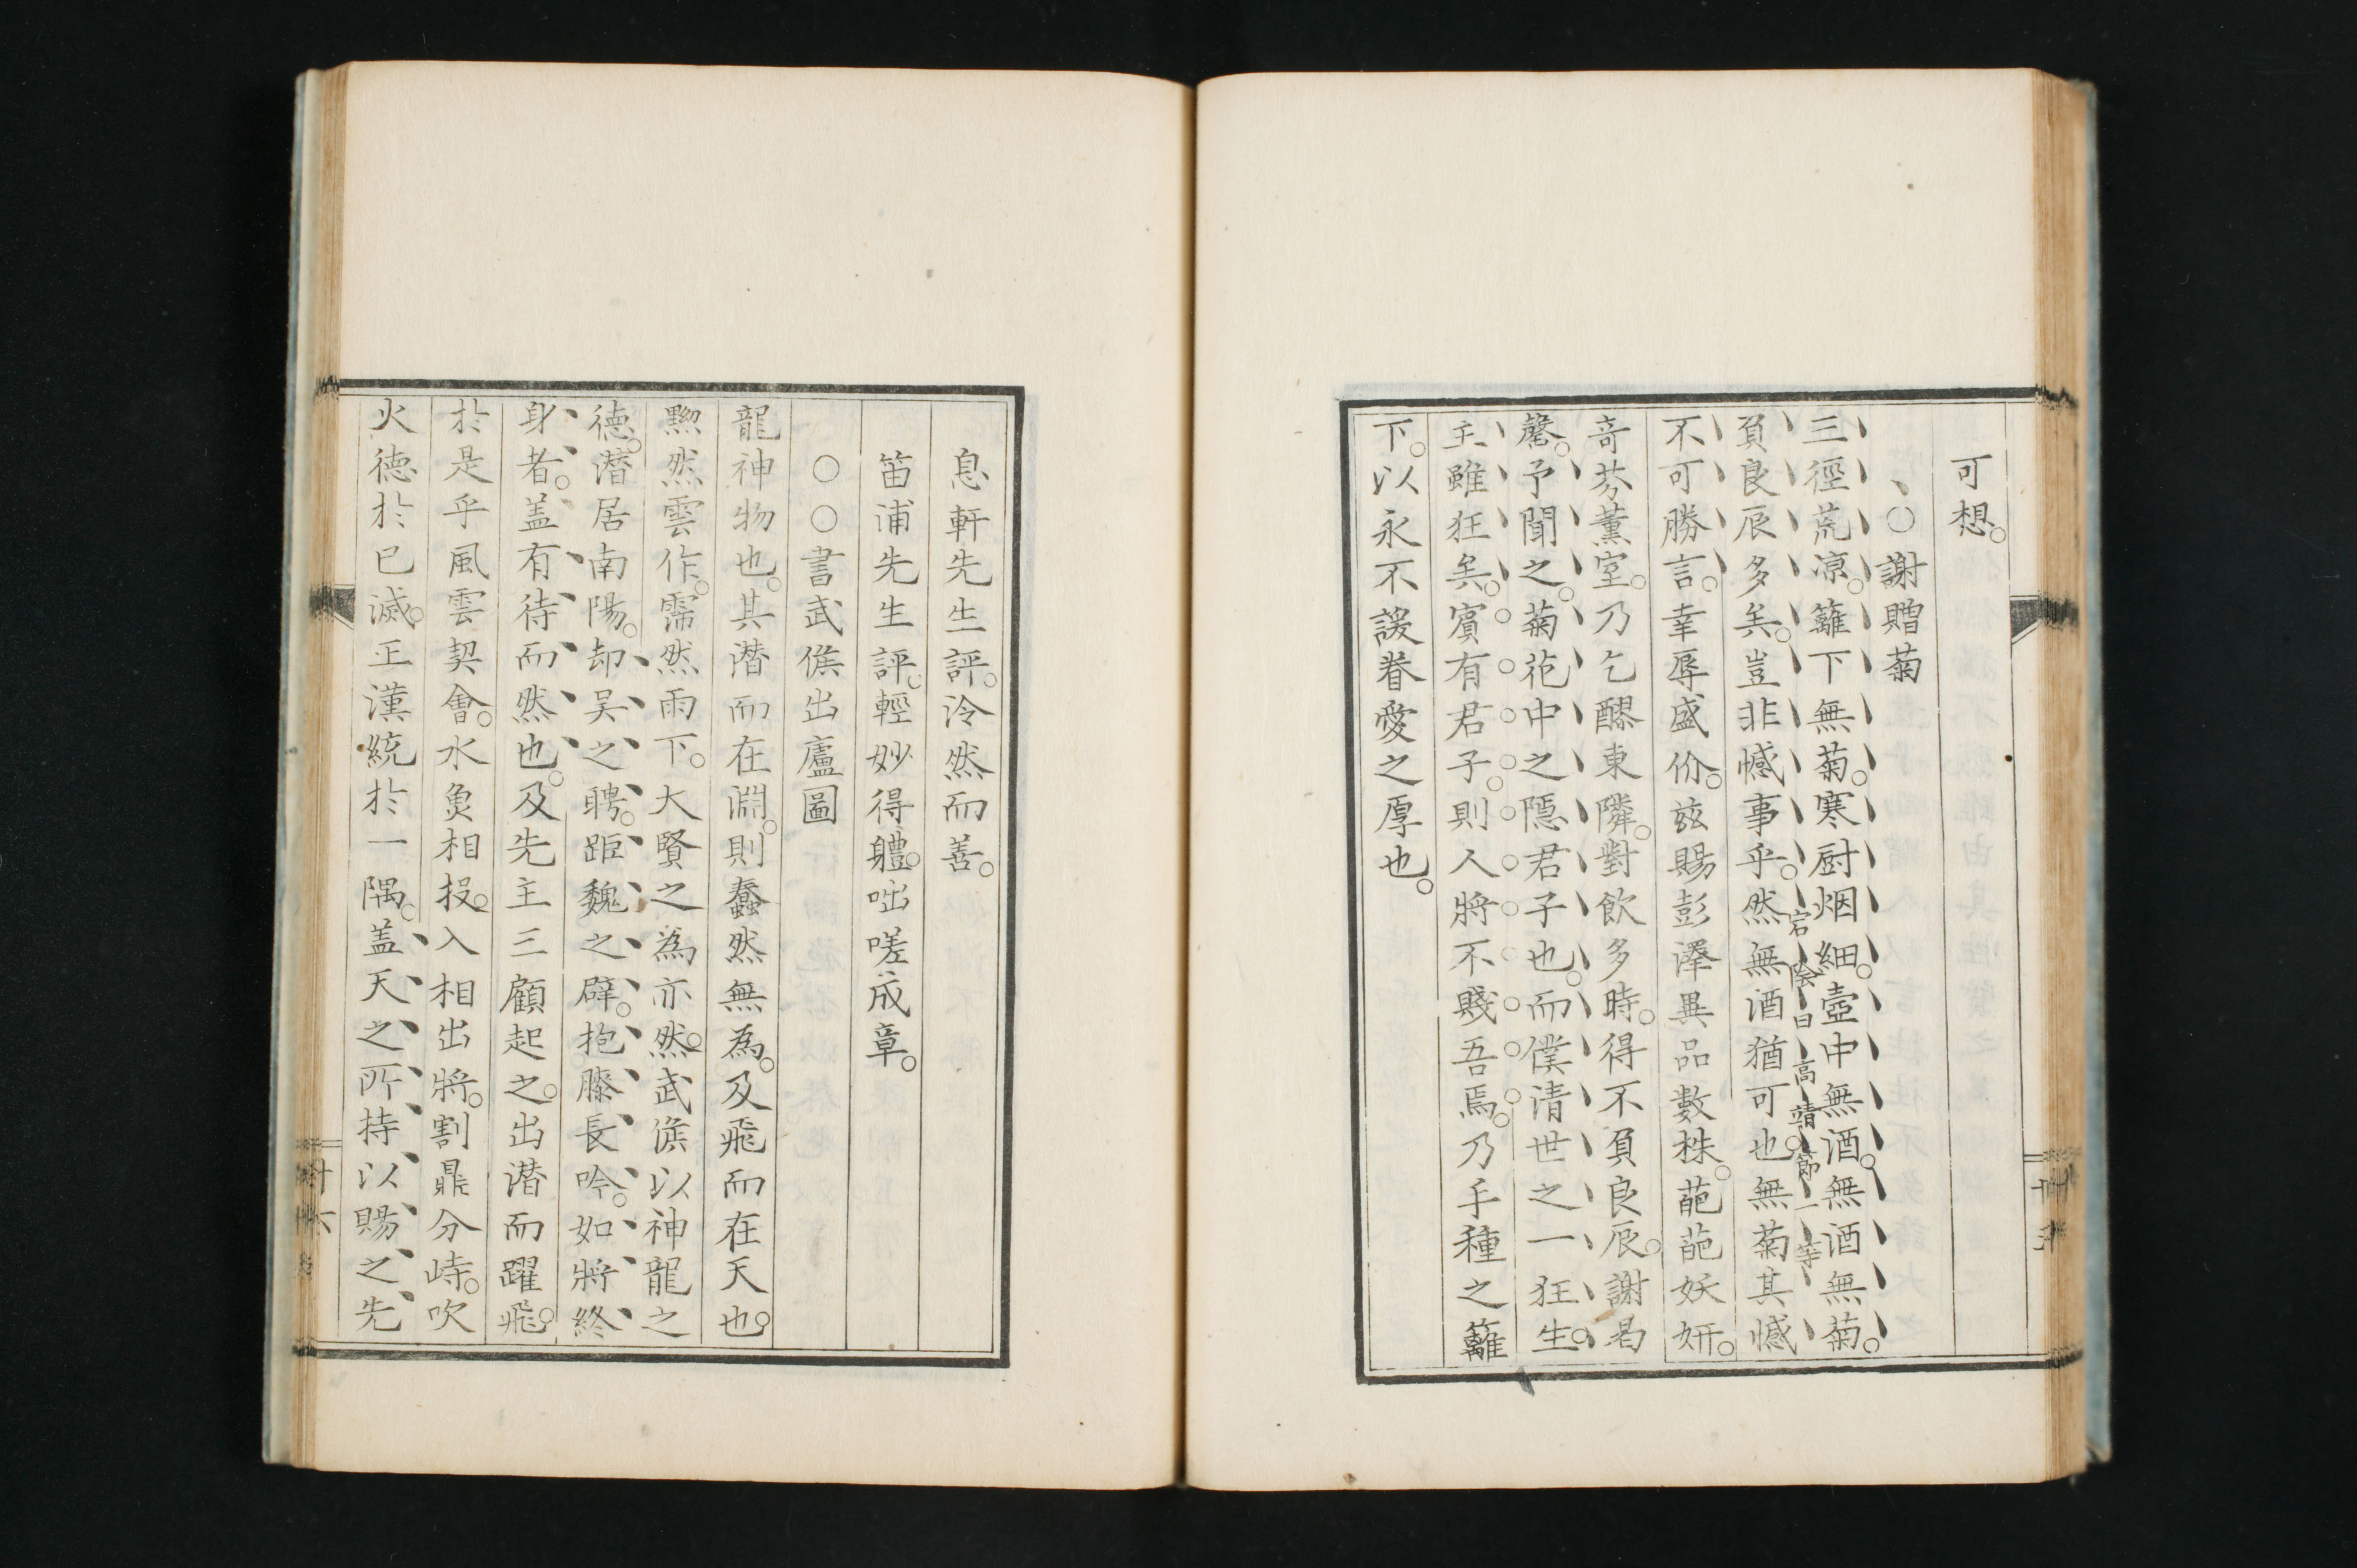 可想。
、○謝贈菊
三徑荒凉。籬下無菊。寒厨烟細。壼中無酒。無酒無菊。
宕陰曰高靖節一等
負良辰多矣。豈非憾事乎。然無酒猶可也。無菊其憾
不可勝言。幸辱盛价。玆賜彭澤異品數株。葩葩妖妍。
奇芬薰室。乃乞醪東隣。對飲多時。得不負良辰。謝曷
罄。予聞之。菊花中之隱君子也。而僕清世之一狂生。
主雖狂矣。賓有君子。則人將不賤吾焉。乃手種之籬
下。以永不諼眷愛之厚也。
息軒先生評。泠然而善。
笛浦先生評。輕妙得軆。咄嗟成章。
○○書武侯出廬圖
龍神物也。其潜而在淵。則蠢然無為。及飛而在天也。
黙然雲作。霈然雨下。大賢之為亦然。然武侯以神龍之
德。潜居南陽。却吴之聘。距魏之辟。抱膝長吟。如將終
身者。盖有待而然也。及先主三顧起之。出潜而躍飛。
於是乎風雲契會。水魚相投。入相出將。割鼎分峙。吹
火德於已滅。正漢統於一隅。盖天之所持以賜之先
十六